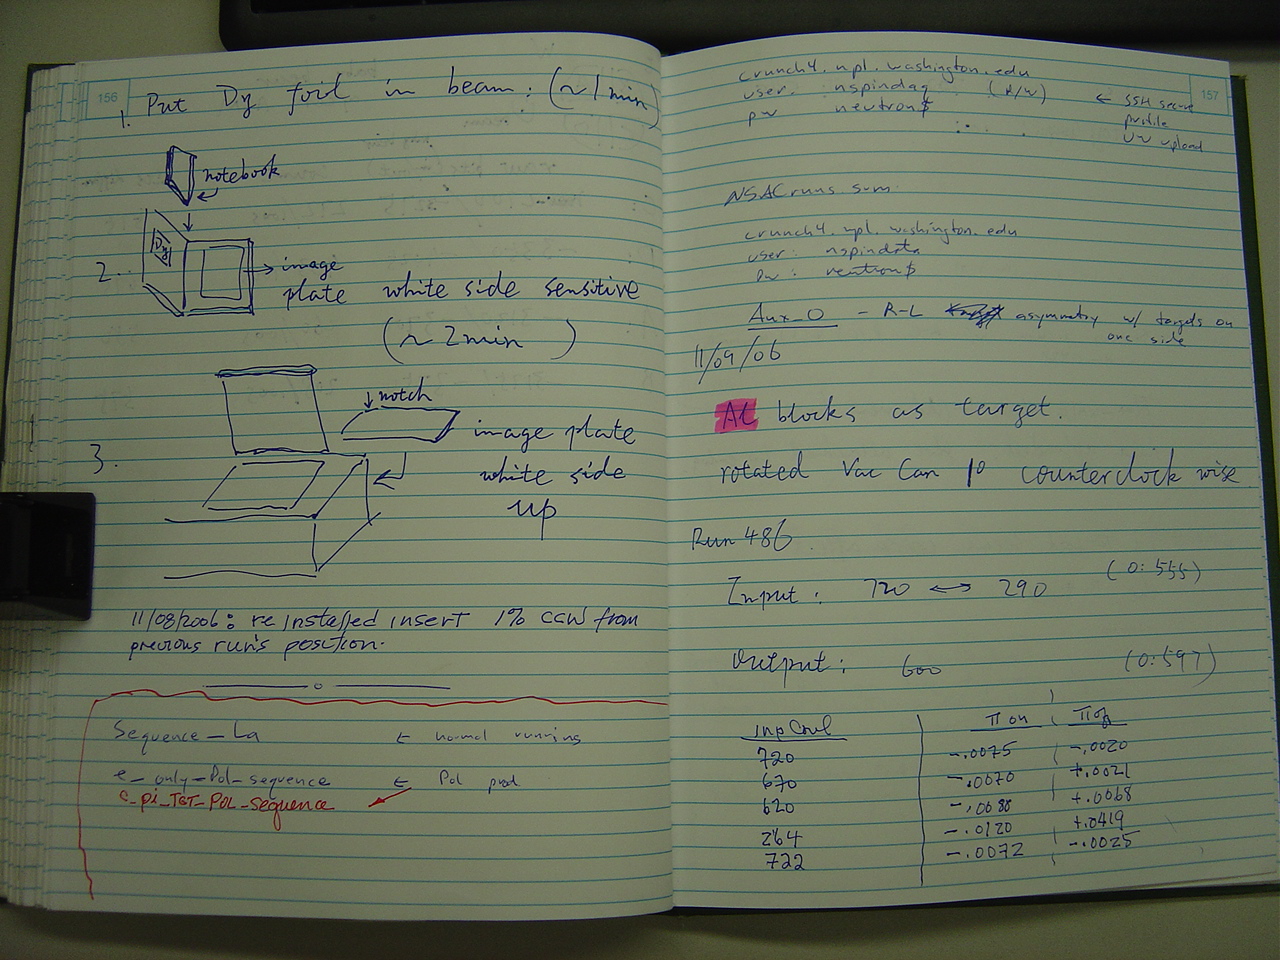 156
1. Put Dy foil in beam: (~1min)
notebook
Dy
2.
image
plate white side sensitive
(~ 2min )
notch
3.
image plate
white side
up
11/08/2006: reinstalled insert 1% CCW from
previous run's position.
Sequence_La ← normal running
e_only_Pol_sequence ← Pol prod
c_pi_TGT_POL_Sequence
157
crunch4.npl.washington.edu
user: nspindaq (R/W)
pw neutron$
← SSH secure
profile
UW upload
NSAC runs.sum
crunch4.npl.washington.edu
user: nspindata
pw: neutron$
Aux_O - R-L asymmetry w/ targets on
one side
11/09/06
Al blocks as target.
rotated Vac Can 1° counterclockwise
Run 486
Input: 720 ↔ 290 (0:555)
Output: 600 (0:597)
inp Coil π on π off
720 -.0075 -.0020
670 -.0070 +.0021
620 -.0088 +.0068
264 -.0120 +.0419
722 -.0072 -.0025